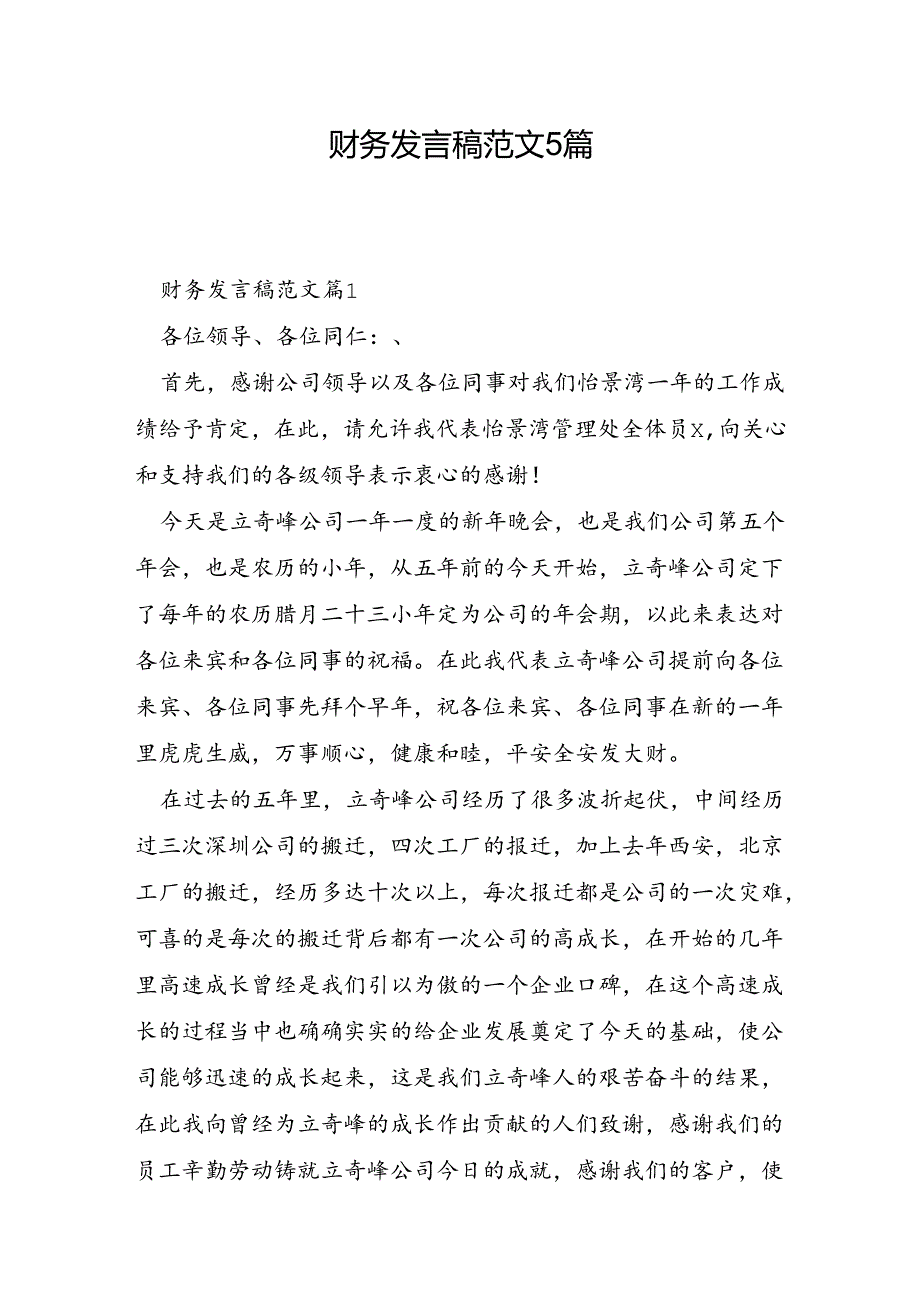 财务发言稿范文5篇
财务发言稿范文篇1
各位领导、各位同仁：、
首先，感谢公司领导以及各位同事对我们怡景湾一年的工作成
绩给予肯定，在此，请允许我代表怡景湾管理处全体员x,向关心
和支持我们的各级领导表示衷心的感谢！
今天是立奇峰公司一年一度的新年晚会，也是我们公司第五个
年会，也是农历的小年，从五年前的今天开始，立奇峰公司定下
了每年的农历腊月二十三小年定为公司的年会期，以此来表达对
各位来宾和各位同事的祝福。在此我代表立奇峰公司提前向各位
来宾、各位同事先拜个早年，祝各位来宾、各位同事在新的一年
里虎虎生威，万事顺心，健康和睦，平安全安发大财。
在过去的五年里，立奇峰公司经历了很多波折起伏，中间经历
过三次深圳公司的搬迁，四次工厂的报迁，加上去年西安，北京
工厂的搬迁，经历多达十次以上，每次报迁都是公司的一次灾难，
可喜的是每次的搬迁背后都有一次公司的高成长，在开始的几年
里高速成长曾经是我们引以为傲的一个企业口碑，在这个高速成
长的过程当中也确确实实的给企业发展奠定了今天的基础，使公
司能够迅速的成长起来，这是我们立奇峰人的艰苦奋斗的结果，
在此我向曾经为立奇峰的成长作出贡献的人们致谢，感谢我们的
员工辛勤劳动铸就立奇峰公司今日的成就，感谢我们的客户，使